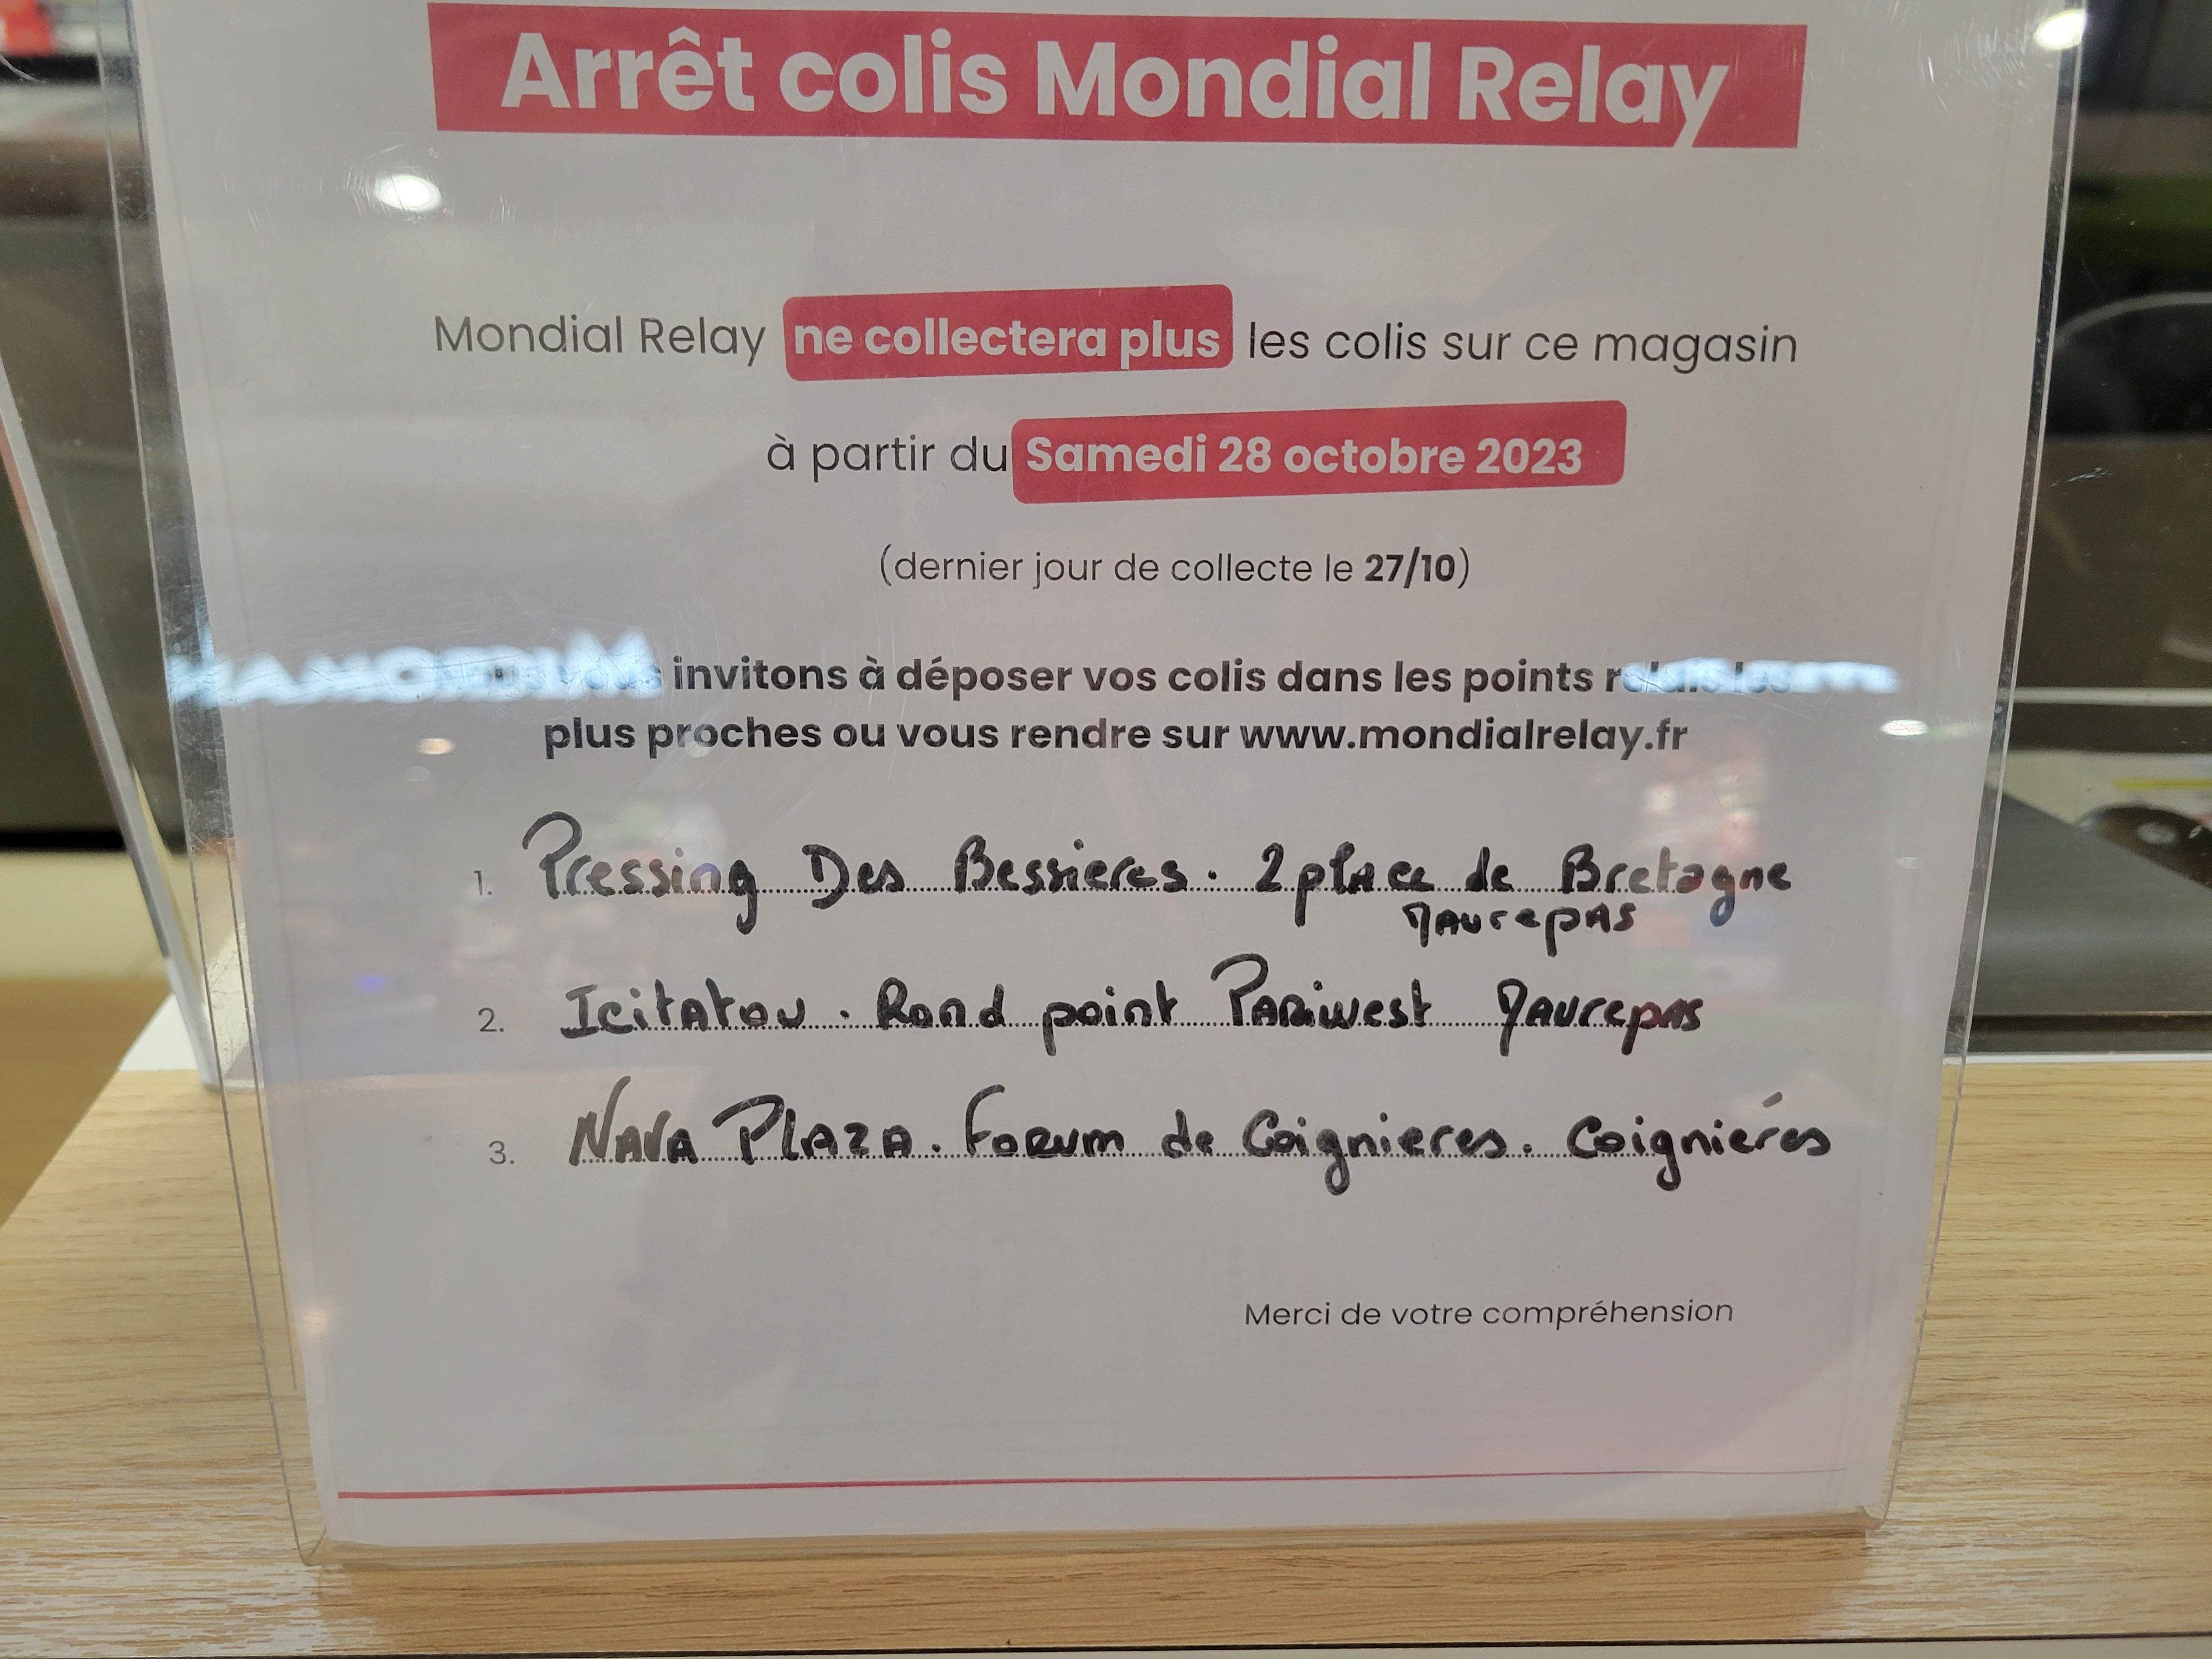 Arrêt colis Mondial Relay
Mondial Relay ne collectera plus les colis sur ce magasin
à partir du Samedi 28 octobre 2023
(dernier jour de collecte le 27/10)
invitons à déposer vos colis dans les points relais les
plus proches ou vous rendre sur www.mondialrelay.fr
1. Pressing Des Bessieres. 2 place de Bretagne
Maurepas
2. Icitatou. Rond point Pariwest Maurepas
3. NAVA PLAZA. Forum de Coignieres. Coigniéres
Merci de votre compréhension